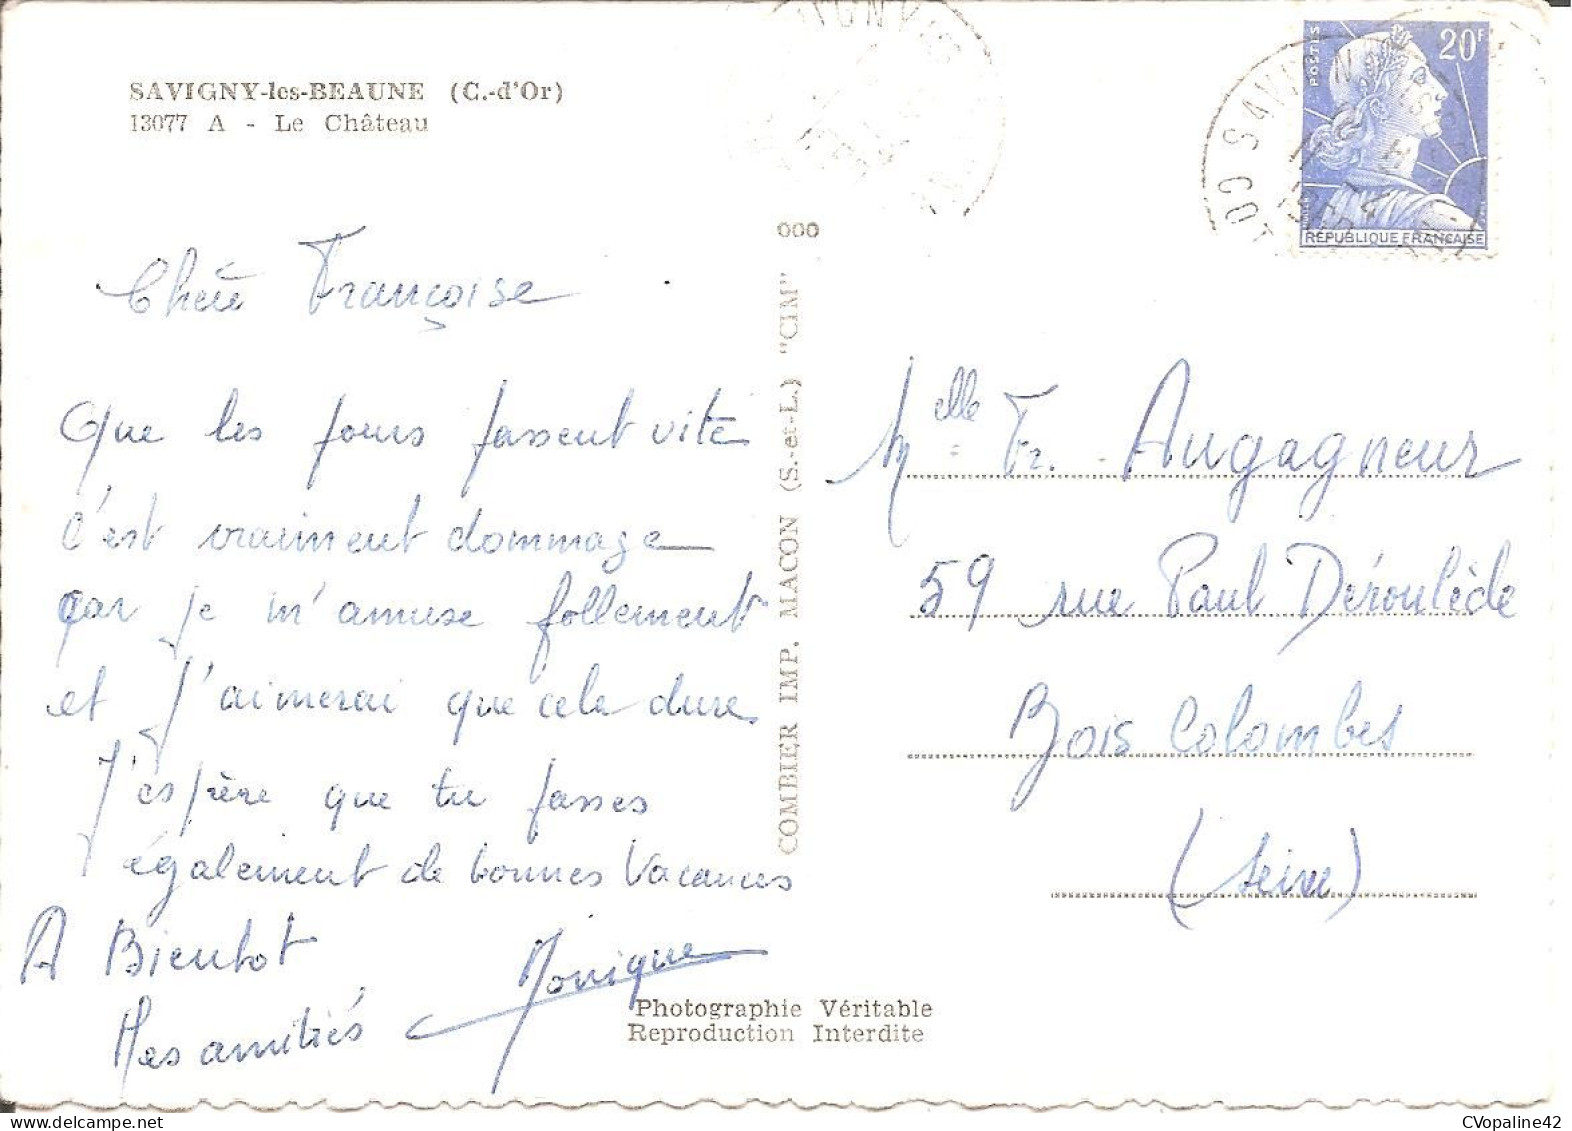 SAVIGNY-les-BEAUNE (C.-d'Or)
13077 A - Le Château
Chère Françoise
Que les jours passent vite
c'est vraiment dommage
car je m'amuse follement
et j'aimerai que cela dure
J'espère que tu passes
également de bonnes Vacances
A Bientot
Mes amitiés Monique
000
COMBIER IMP. MACON (S.-et-L.) "CIM"
Photographie Véritable
Reproduction Interdite
POSTES
20F
RÉPUBLIQUE FRANÇAISE
Melle Fr. Augagneur
59 rue Paul Déroulède
Bois Colombes
(Seine)
CVopaline42